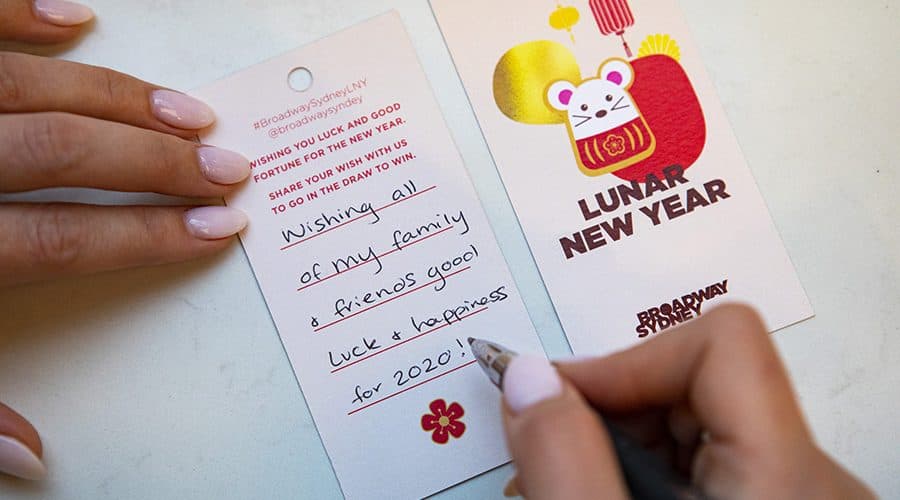 #BroadwaySydneyLNY
@broadwaysyndey
WISHING YOU LUCK AND GOOD
FORTUNE FOR THE NEW YEAR.
SHARE YOUR WISH WITH US
TO GO IN THE DRAW TO WIN.
Wishing all
of my family
& friends good
luck & happiness
for 2020!
LUNAR
NEW YEAR
BROADWAY
SYDNEY